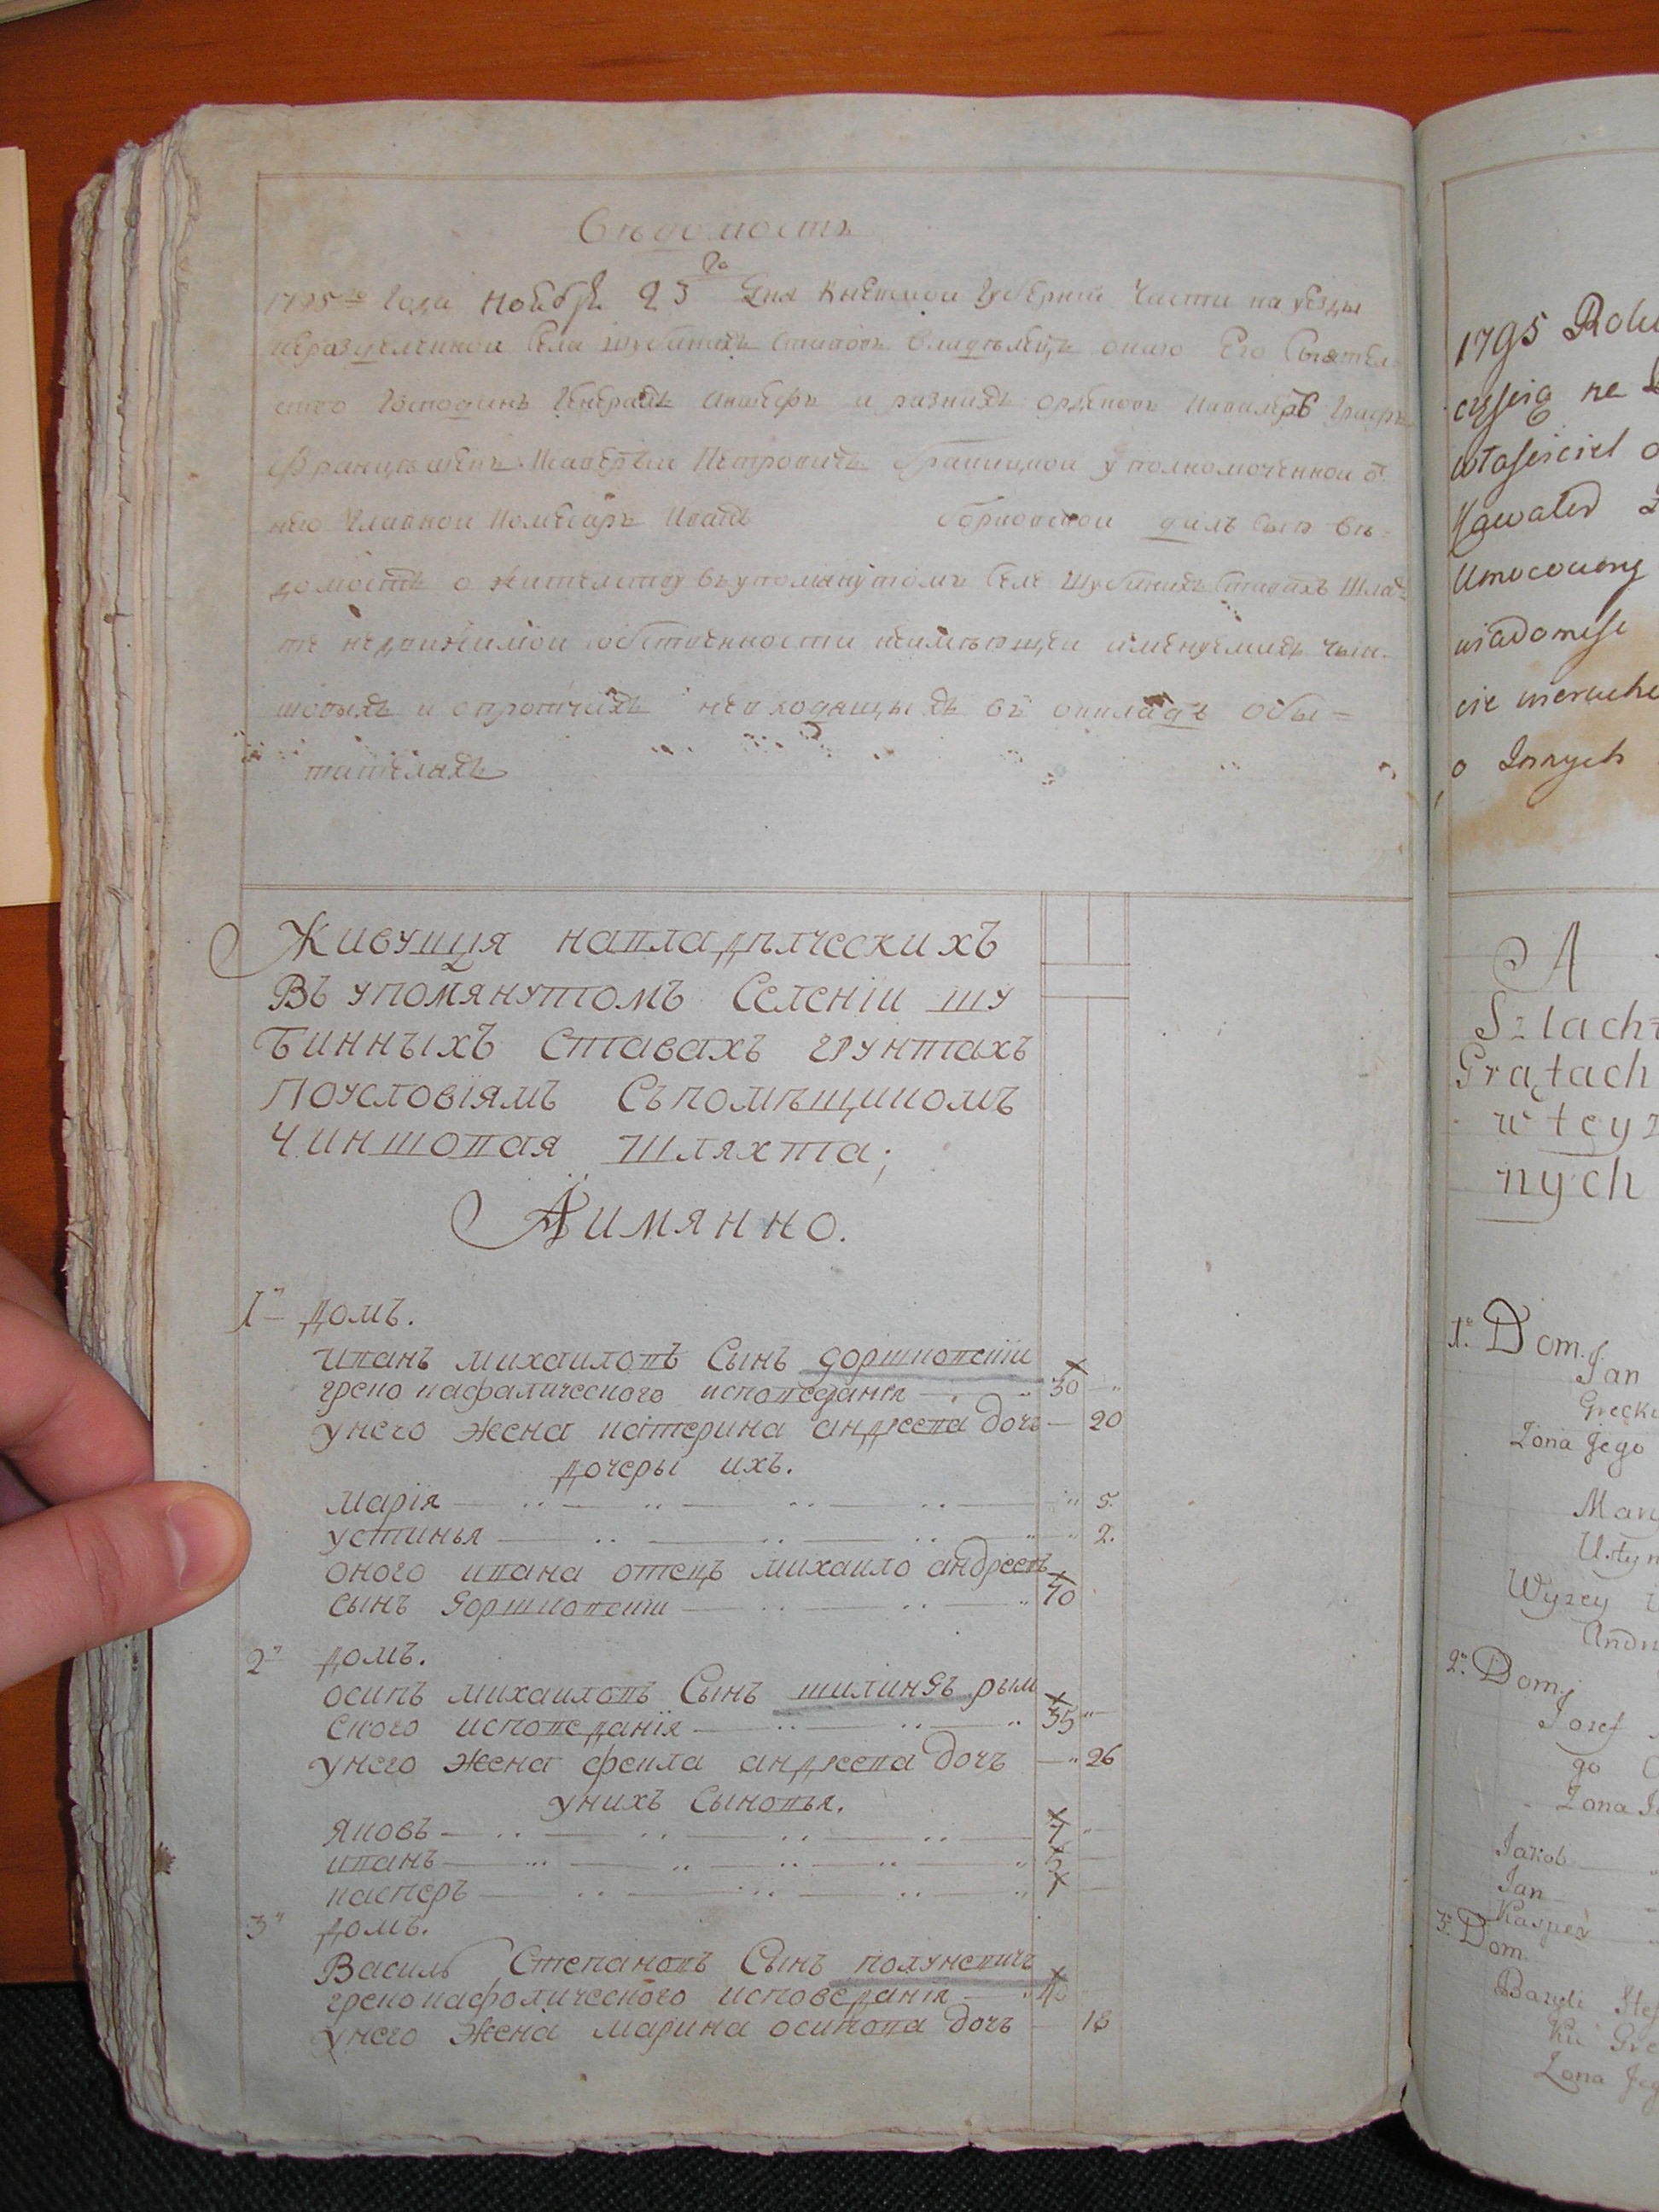 Вѣдомость
1795го Года Ноября 23го Дня Киевской Губерніи Части на уезды
неразделенной Села Шубиныхъ Ставовъ Владѣлецъ оного Его Сіятел
ство Господинъ Генералъ Аншефъ и разныхъ орденовъ Кавалеръ Графъ
Петровичъ Браницкой уполномоченной о
него Главной Комесаръ Иванъ дал сыю Вѣ=
домость о жителству въ упомянутомъ селе Шубиныхъ Ставахъ Шлях
те недвижимой собственности неимѣющей имянуемихъ чин
шовыхъ и о протчихъ невходящыхъ въ окладъ обы=
тателяхъ
Живущія навладѣлческихъ
Въ упомянутомъ Селеніи шу
бинныхъ Ставахъ грунтахъ
Поусловіямъ Съпомѣщикомъ
Чиншовая шляхта;
Аимянно.
1й домъ.
иванъ михаиловъ Сынъ доршковскіи
греко кафалического исповеданія 30
унего жена катерина андреева дочь 20
дочеры ихъ.
марія 5.
устинья 2.
оного ивана отецъ михаило андреевъ
сынъ доршковскіи 70
2й домъ.
осипъ михаиловъ Сынъ шилингъ рым
ского исповеданія 35
унего жена фекла андреева дочь 26
унихъ Сыновья.
яковъ 7
иванъ
касперъ 1
3й домъ.
Василь Степановъ Сынъ полункевичъ
грекокафолического исповеданія 40
унего жена марина осипова дочь 18
1795 Roku
cyfsią na
włafsciciel o
Kawaler
Umocowany
wiadomość
cie nieruche
o Innych
A
Szlacht
Grątach
w teyz
nych
1. Dom.
Jan
Grecki
Zona Jego
Mary
Ustyn
Wyzey
Andr
2. Dom.
Jozef
go
Zona J
Jakob
Jan
Kasper
3. Dom.
Bazyli Stef
Kii Gre
Zona Jeg